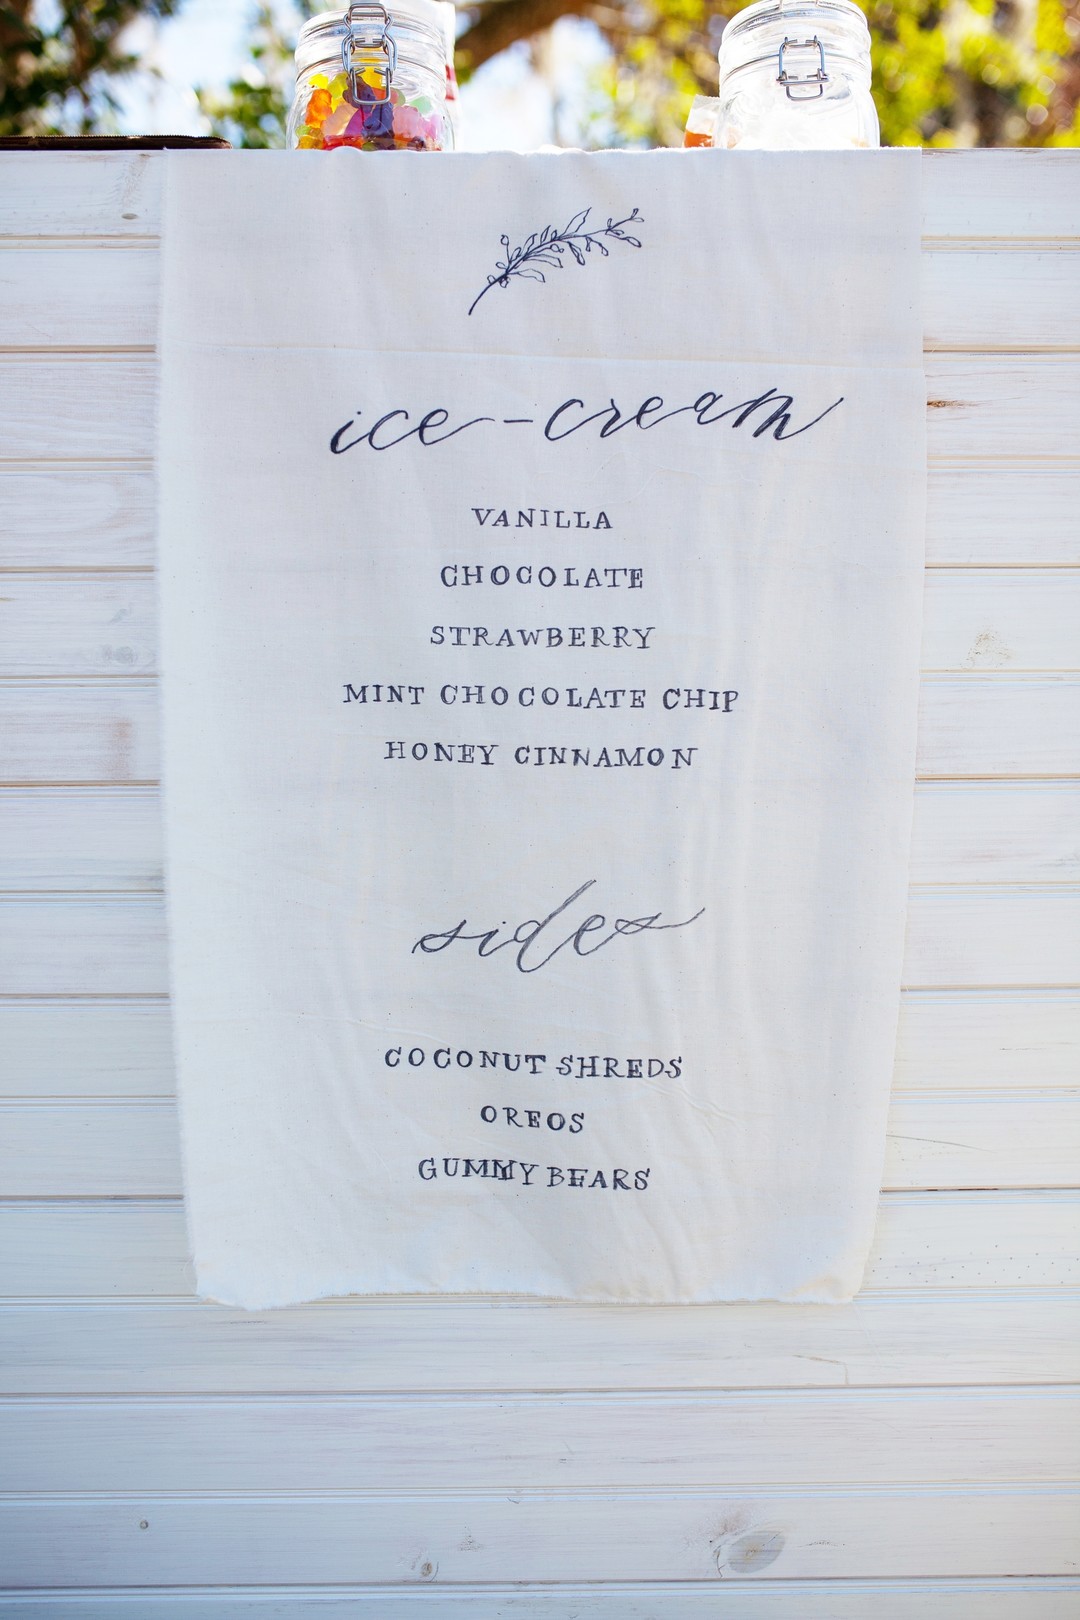 ice-cream
VANILLA
CHOCOLATE
STRAWBERRY
MINT CHOCOLATE CHIP
HONEY CINNAMON
sides
COCONUT SHREDS
OREOS
GUMMY BEARS